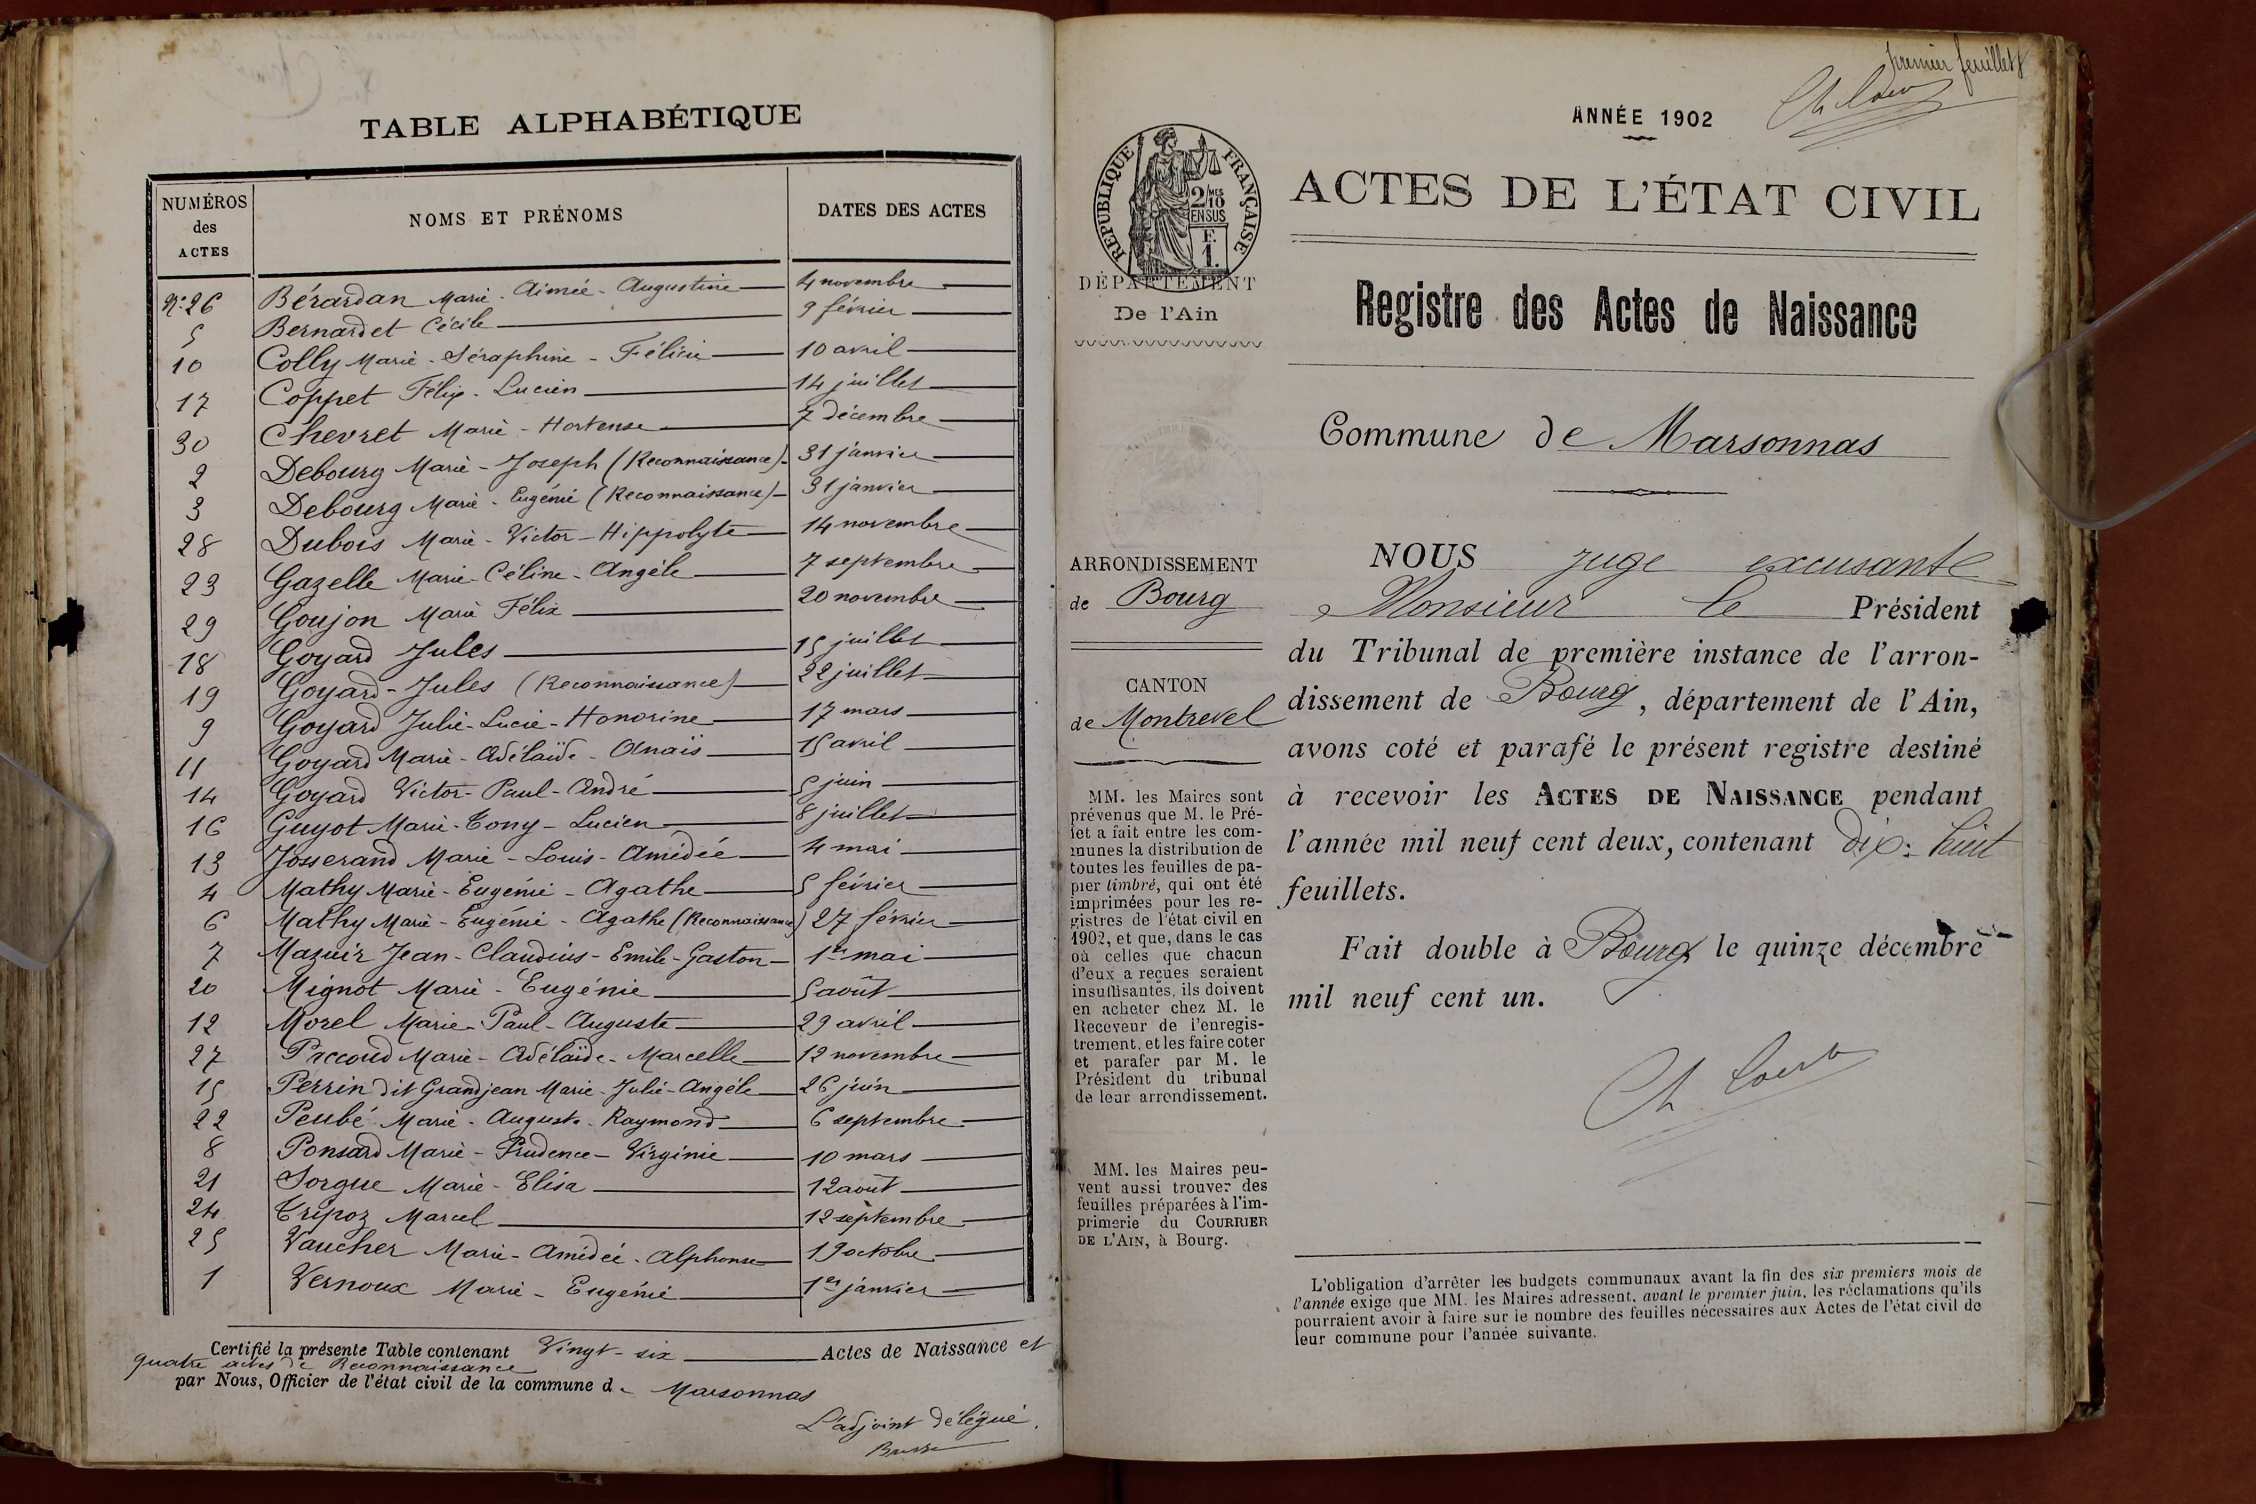 TABLE ALPHABÉTIQUE
NUMÉROS des ACTES NOMS ET PRÉNOMS DATES DES ACTES
N° 26 Bérardan Marie - Aimée - Augustine 4 novembre
5 Bernardet Cécile 9 février
10 Colly Marie - Séraphine - Félicie 10 avril
17 Coppet Félix - Lucien 14 juillet
30 Chevret Marie - Hortense 7 décembre
2 Debourg Marie - Joseph (Reconnaissance) 31 janvier
3 Debourg Marie - Eugénie (Reconnaissance) 31 janvier
28 Dubois Marie - Victor - Hippolyte 14 novembre
23 Gazelle Marie - Céline - Angèle 7 septembre
29 Goujon Marie Félix 20 novembre
18 Goyard Jules 15 juillet
19 Goyard - Jules (Reconnaissance) 22 juillet
9 Goyard Julie - Lucie - Honorine 17 mars
11 Goyard Marie - Adélaïde - Anaïs 15 avril
14 Goyard Victor - Paul - André 5 juin
16 Guyot Marie - Tony - Lucien 8 juillet
13 Josserand Marie - Louis - Amédée 4 mai
4 Mathy Marie - Eugénie - Agathe 5 février
6 Mathy Marie - Eugénie - Agathe (Reconnaissance) 27 février
7 Mazuir Jean - Claudius - Emile - Gaston 1er mai
20 Mignot Marie - Eugénie 5 août
12 Morel Marie - Paul - Auguste 29 avril
27 Paccoud Marie - Adélaïde - Marcelle 12 novembre
15 Perrin dit Grandjean Marie - Julie - Angèle 26 juin
22 Peubé Marie - Auguste - Raymond 6 septembre
8 Ponsard Marie - Prudence - Virginie 10 mars
21 Sorgue Marie - Elisa 12 août
24 Trépoz Marcel 12 septembre
25 Vaucher Marie - Amédée - Alphonse 19 octobre
1 Vernoux Marie - Eugénie 1er janvier
Certifié la présente Table contenant Vingt - six Actes de Naissance et
quatre actes de Reconnaissance
par Nous, Officier de l'état civil de la commune de Marsonnas
L'adjoint délégué
premier feuillet
ANNÉE 1902
RÉPUBLIQUE FRANÇAISE
2/10 MES
EN SUS
F.
1.
ACTES DE L'ÉTAT CIVIL
DÉPARTEMENT
De l'Ain
Registre des Actes de Naissance
Commune de Marsonnas
ARRONDISSEMENT
de Bourg
CANTON
de Montrevel
MM. les Maires sont
prévenus que M. le Pré-
fet a fait entre les com-
munes la distribution de
toutes les feuilles de pa-
pier timbré, qui ont été
imprimées pour les re-
gistres de l'état civil en
1902, et que, dans le cas
où celles que chacun
d'eux a reçues seraient
insuffisantes, ils doivent
en acheter chez M. le
Receveur de l'enregis-
trement, et les faire coter
et parafer par M. le
Président du tribunal
de leur arrondissement.
MM. les Maires peu-
vent aussi trouver des
feuilles préparées à l'im-
primerie du COURRIER
DE L'AIN, à Bourg.
NOUS juge excusante
Monsieur le Président
du Tribunal de première instance de l'arron-
dissement de Bourg, département de l'Ain,
avons coté et parafé le présent registre destiné
à recevoir les ACTES DE NAISSANCE pendant
l'année mil neuf cent deux, contenant dix-huit
feuillets.
Fait double à Bourg le quinze décembre
mil neuf cent un.
L'obligation d'arrêter les budgets communaux avant la fin des six premiers mois de
l'année exige que MM. les Maires adressent, avant le premier juin, les réclamations qu'ils
pourraient avoir à faire sur le nombre des feuilles nécessaires aux Actes de l'état civil de
leur commune pour l'année suivante.